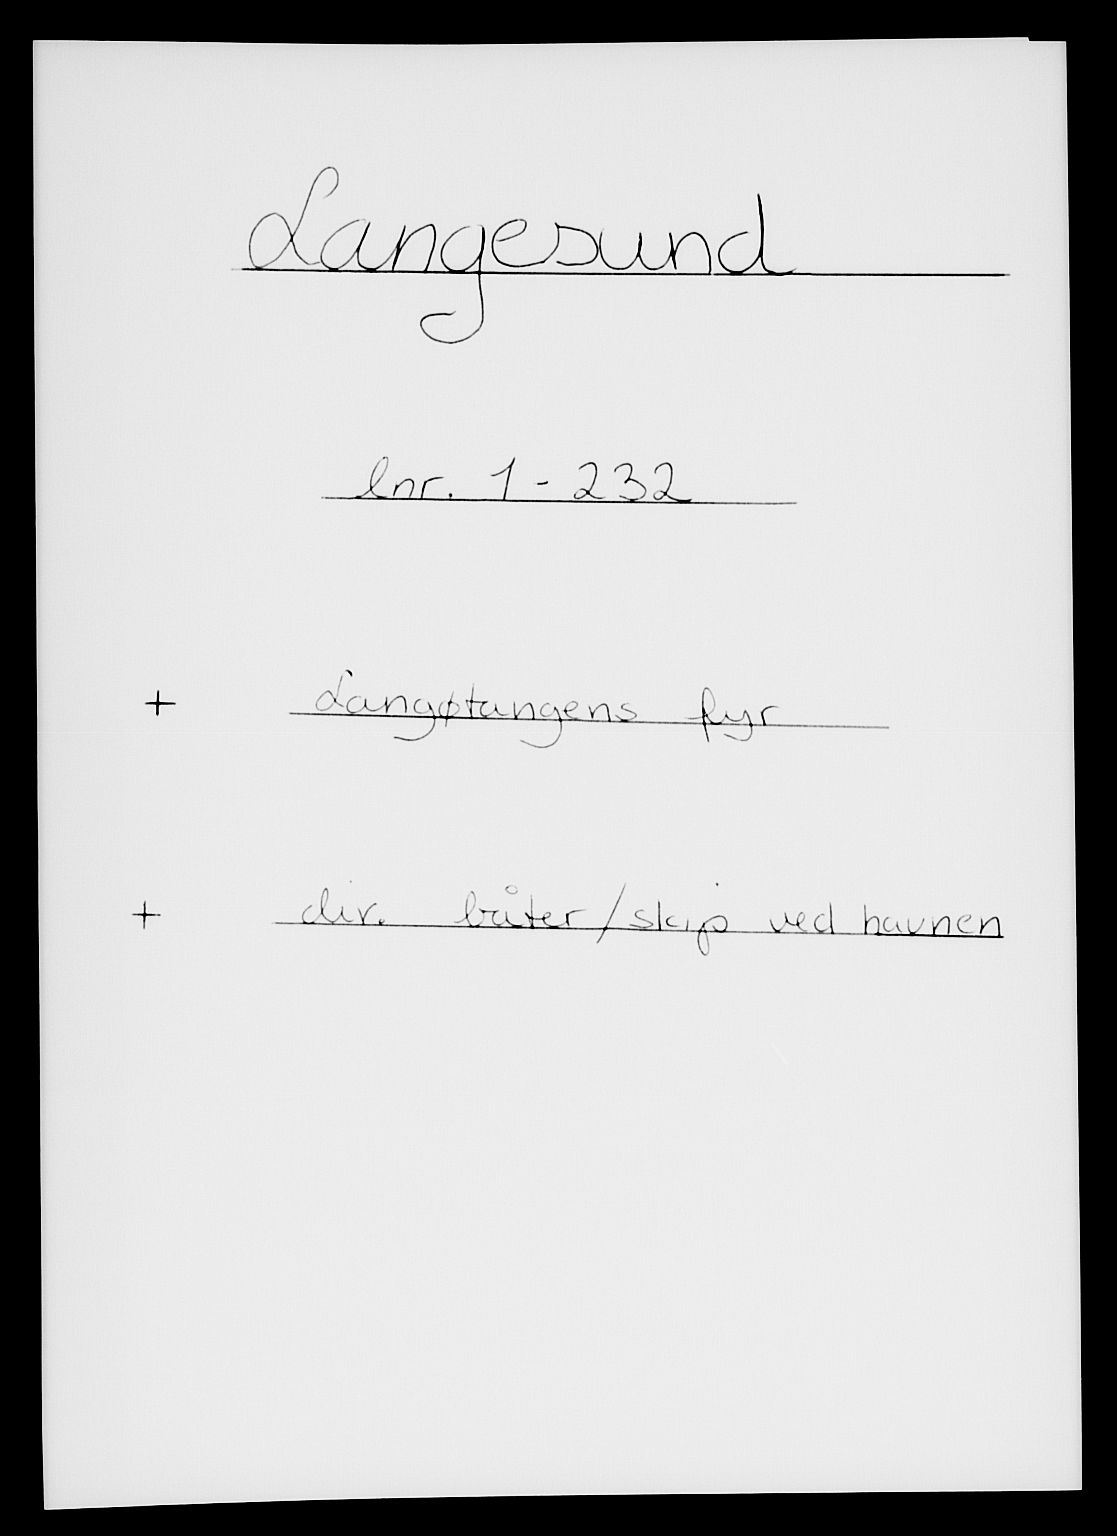 Langesund
lnr. 1 - 232
+ Langøtangens fyr
+ div. båter/skip ved havnen